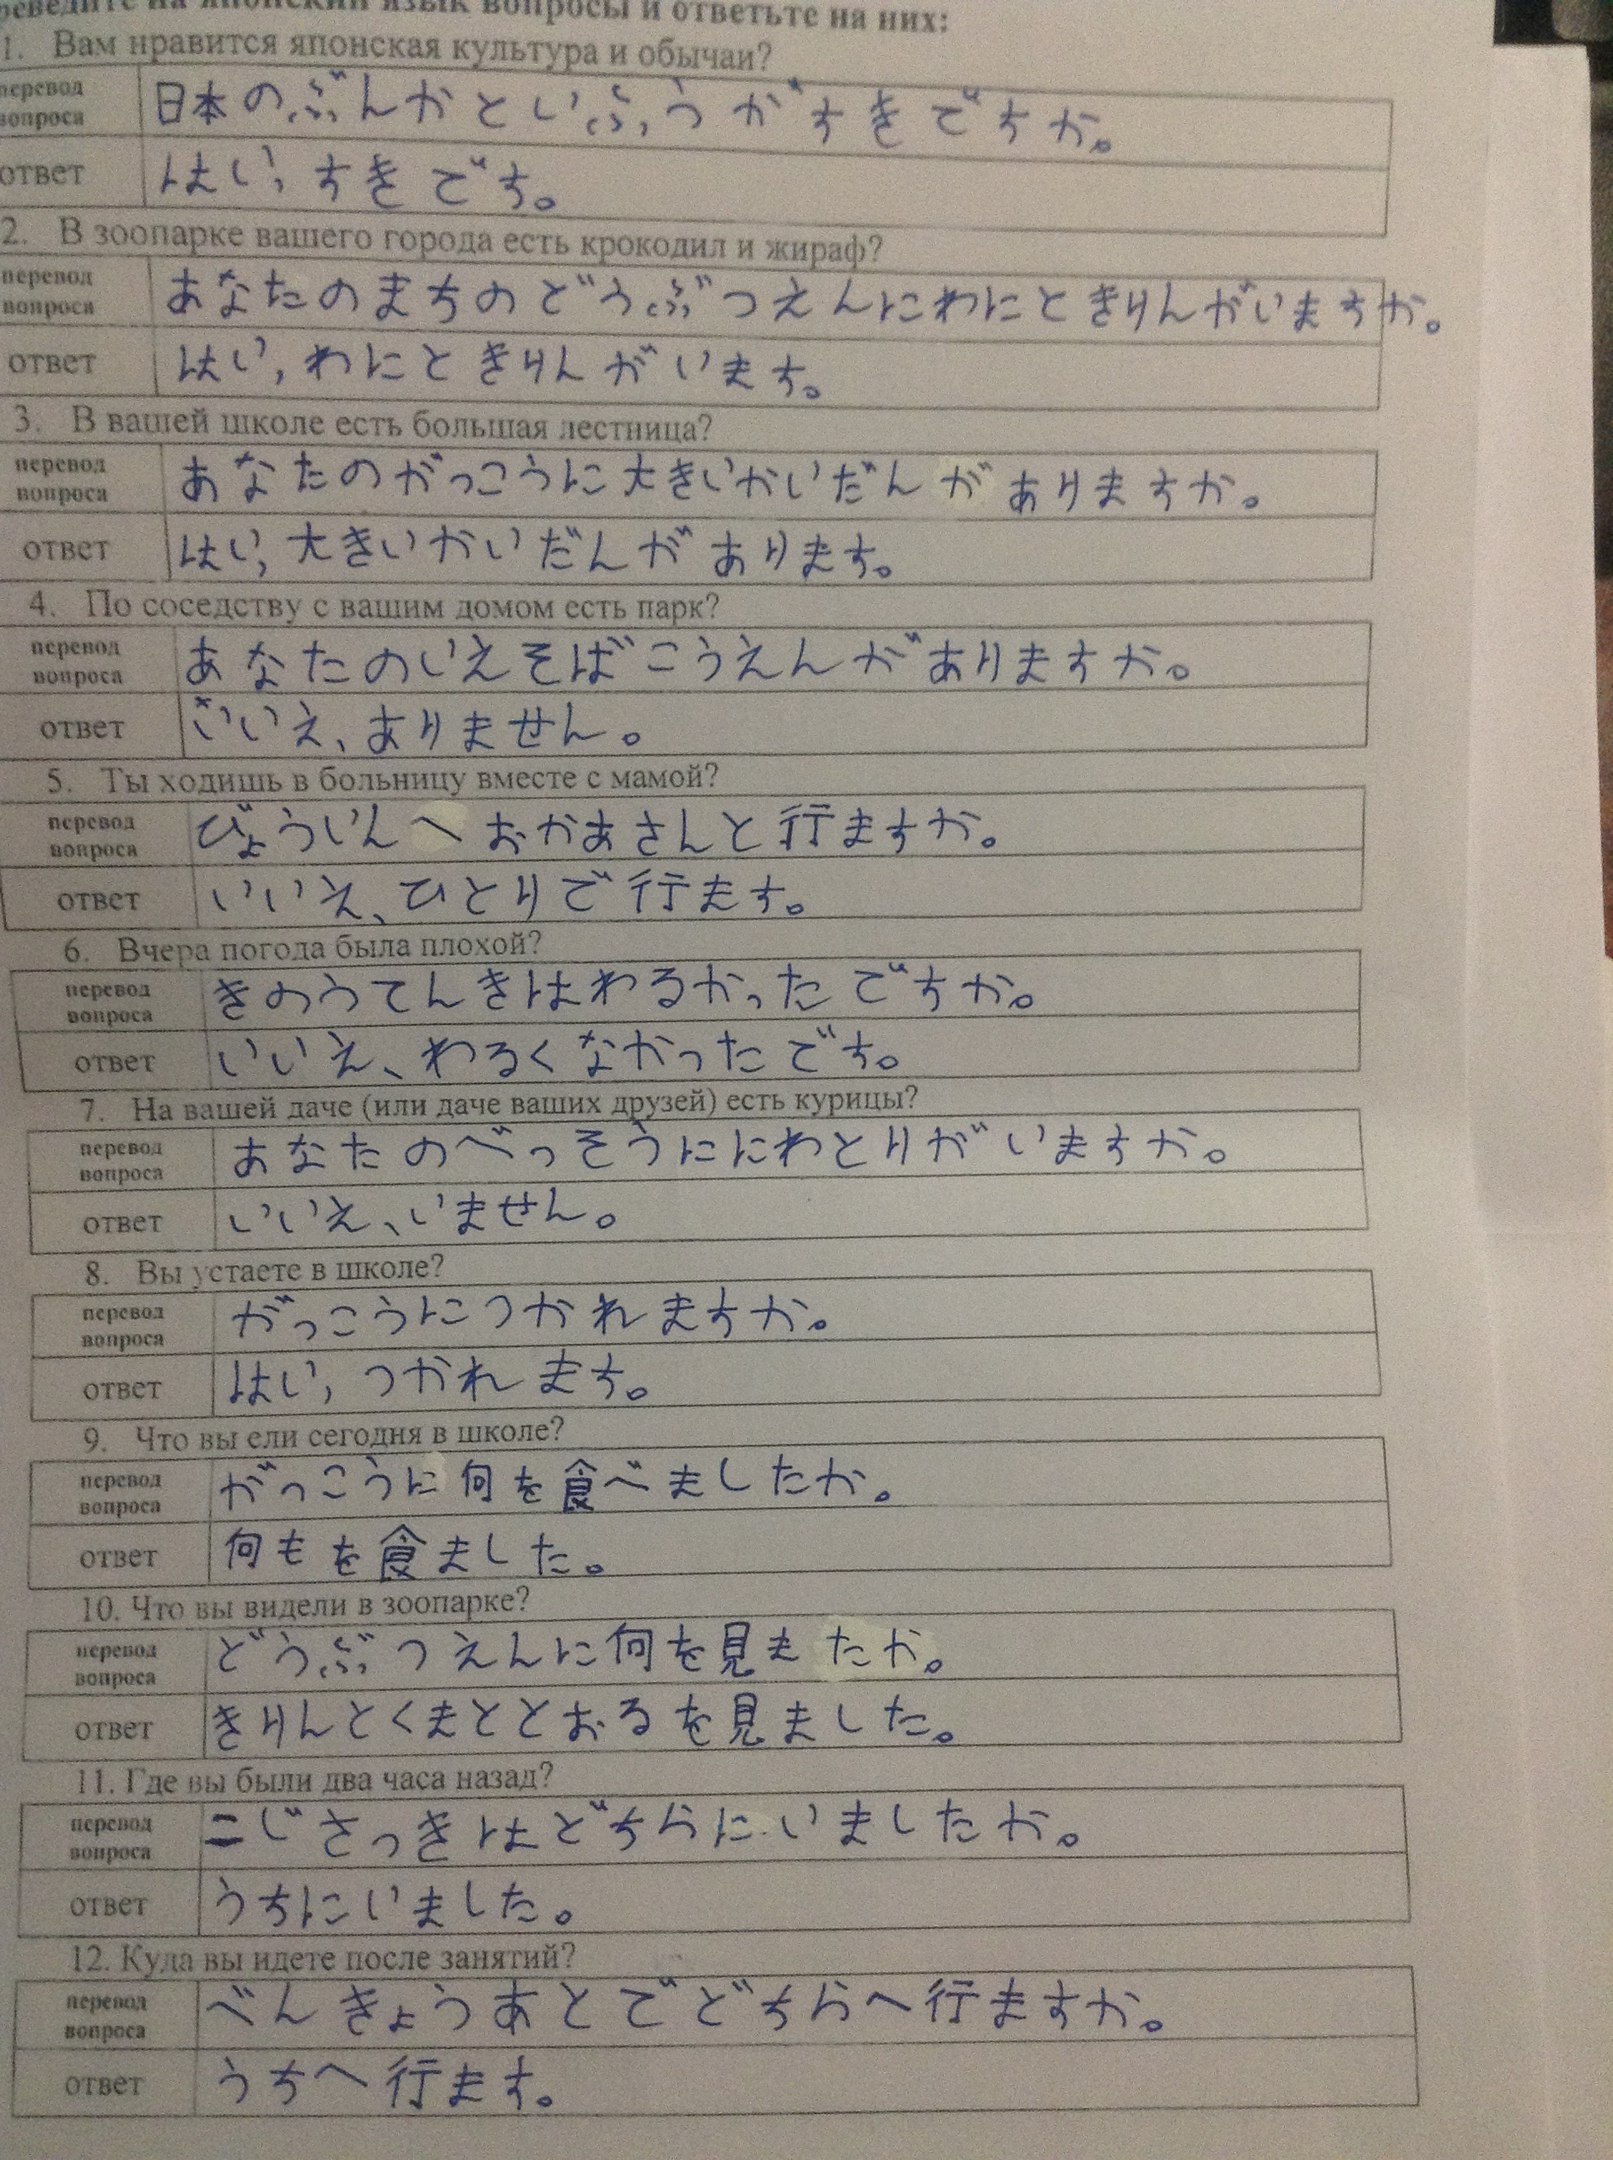 реведите на японский язык вопросы и ответьте на них:
1. Вам нравится японская культура и обычаи?
перевод вопроса 日本のぶんかといふうがすきですか。
ответ はい、すきです。
2. В зоопарке вашего города есть крокодил и жираф?
перевод вопроса あなたのまちのどうぶつえんにわにときりんがいますか。
ответ はい、わにときりんがいます。
3. В вашей школе есть большая лестница?
перевод вопроса あなたのがっこうに大きいかいだんがありますか。
ответ はい、大きいかいだんがあります。
4. По соседству с вашим домом есть парк?
перевод вопроса あなたのいえそばこうえんがありますか。
ответ いいえ、ありません。
5. Ты ходишь в больницу вместе с мамой?
перевод вопроса びょういんへおかあさんと行ますか。
ответ いいえ、ひとりで行ます。
6. Вчера погода была плохой?
перевод вопроса きのうてんきはわるかったですか。
ответ いいえ、わるくなかったです。
7. На вашей даче (или даче ваших друзей) есть курицы?
перевод вопроса あなたのべっそうににわとりがいますか。
ответ いいえ、いません。
8. Вы устаете в школе?
перевод вопроса がっこうにつかれますか。
ответ はい、つかれます。
9. Что вы ели сегодня в школе?
перевод вопроса がっこうに何を食べましたか。
ответ 何もを食ました。
10. Что вы видели в зоопарке?
перевод вопроса どうぶつえんに何を見またか。
ответ きりんとくまととおるを見ました。
11. Где вы были два часа назад?
перевод вопроса 二じさっきはどちらにいましたか。
ответ うちにいました。
12. Куда вы идете после занятий?
перевод вопроса べんきょうあとでどちらへ行ますか。
ответ うちへ行ます。